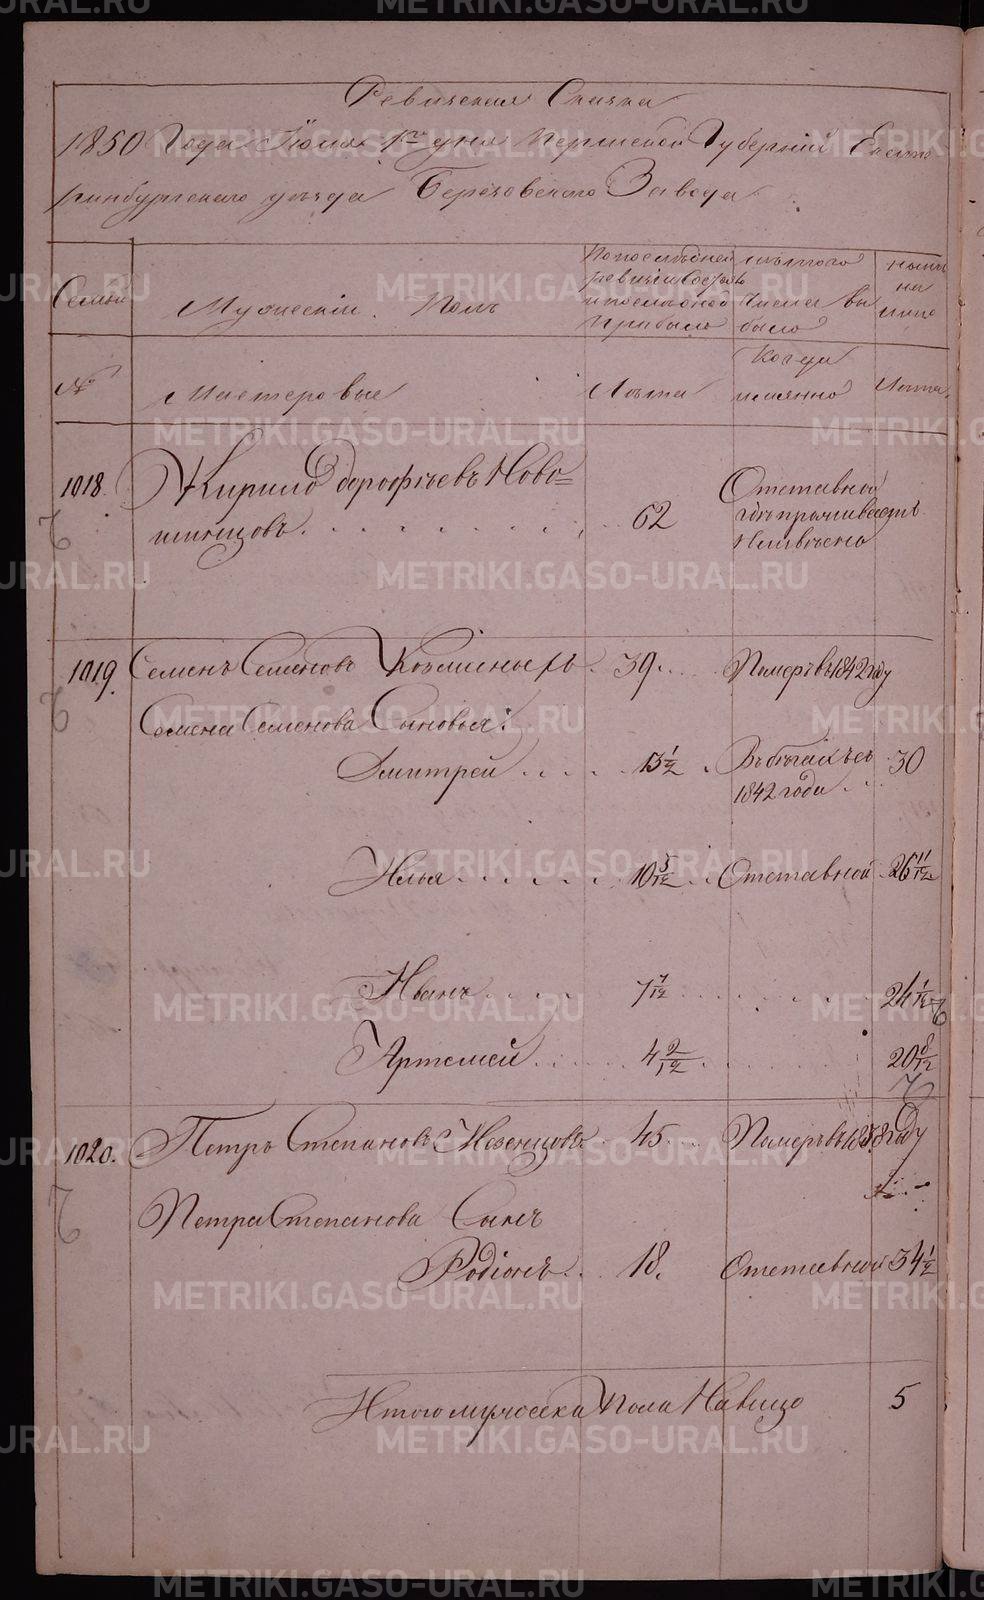 Ревизская Сказка
1850 Года Июля 1го дня Пермской Губернiи Екате
ринбургскаго уезда Березовскаго Завода
Семьи
Мужескiй Полъ
По последней
ревизiи Состояло
и после оной
Прибыло
изъ того
Числа вы
было
ныне
на
лицо
№
Мастеровые
Лета
Когда
имянно
Лета
1018
Кирило Дорофеевъ Ново=
62
Отставной
где проживаетъ
Неизвестно
1019. Семенъ Семеновъ 39. Померъ въ 1842 году
Семена Семенова Сыновья:
Дмитрей 13 1/2 Въ бегахъ съ 30
1842 года
Илья 10 5/12 Отставной 26 11/12
Иванъ 7 7/12 24 1/12
Артемей 4 2/12 20 8/12
1020. Петръ Степановъ 45 Померъ въ году
Петра Степанова Сынъ
Родiонъ 18. Отставной 34 1/2
Итого мужеска Пола На лицо 5
METRIKI.GASO-URAL.RU